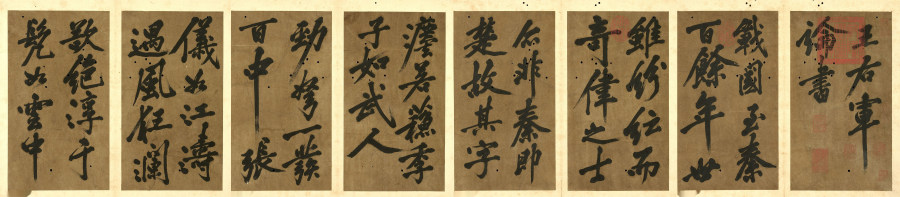 王右軍
論書
戰國至秦
百餘年世
雖紛紜而
奇偉之士
非秦即
楚故其字
若蘓季
子如武人
勁弩一發
百中張
儀如江濤
遇風狂瀾
欲絕浮于
如雲中